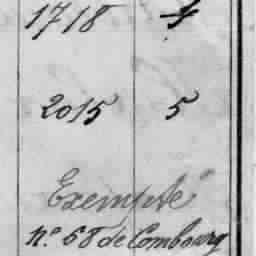 1718 4
2015 5
Exempté
nº 68 de Combourg